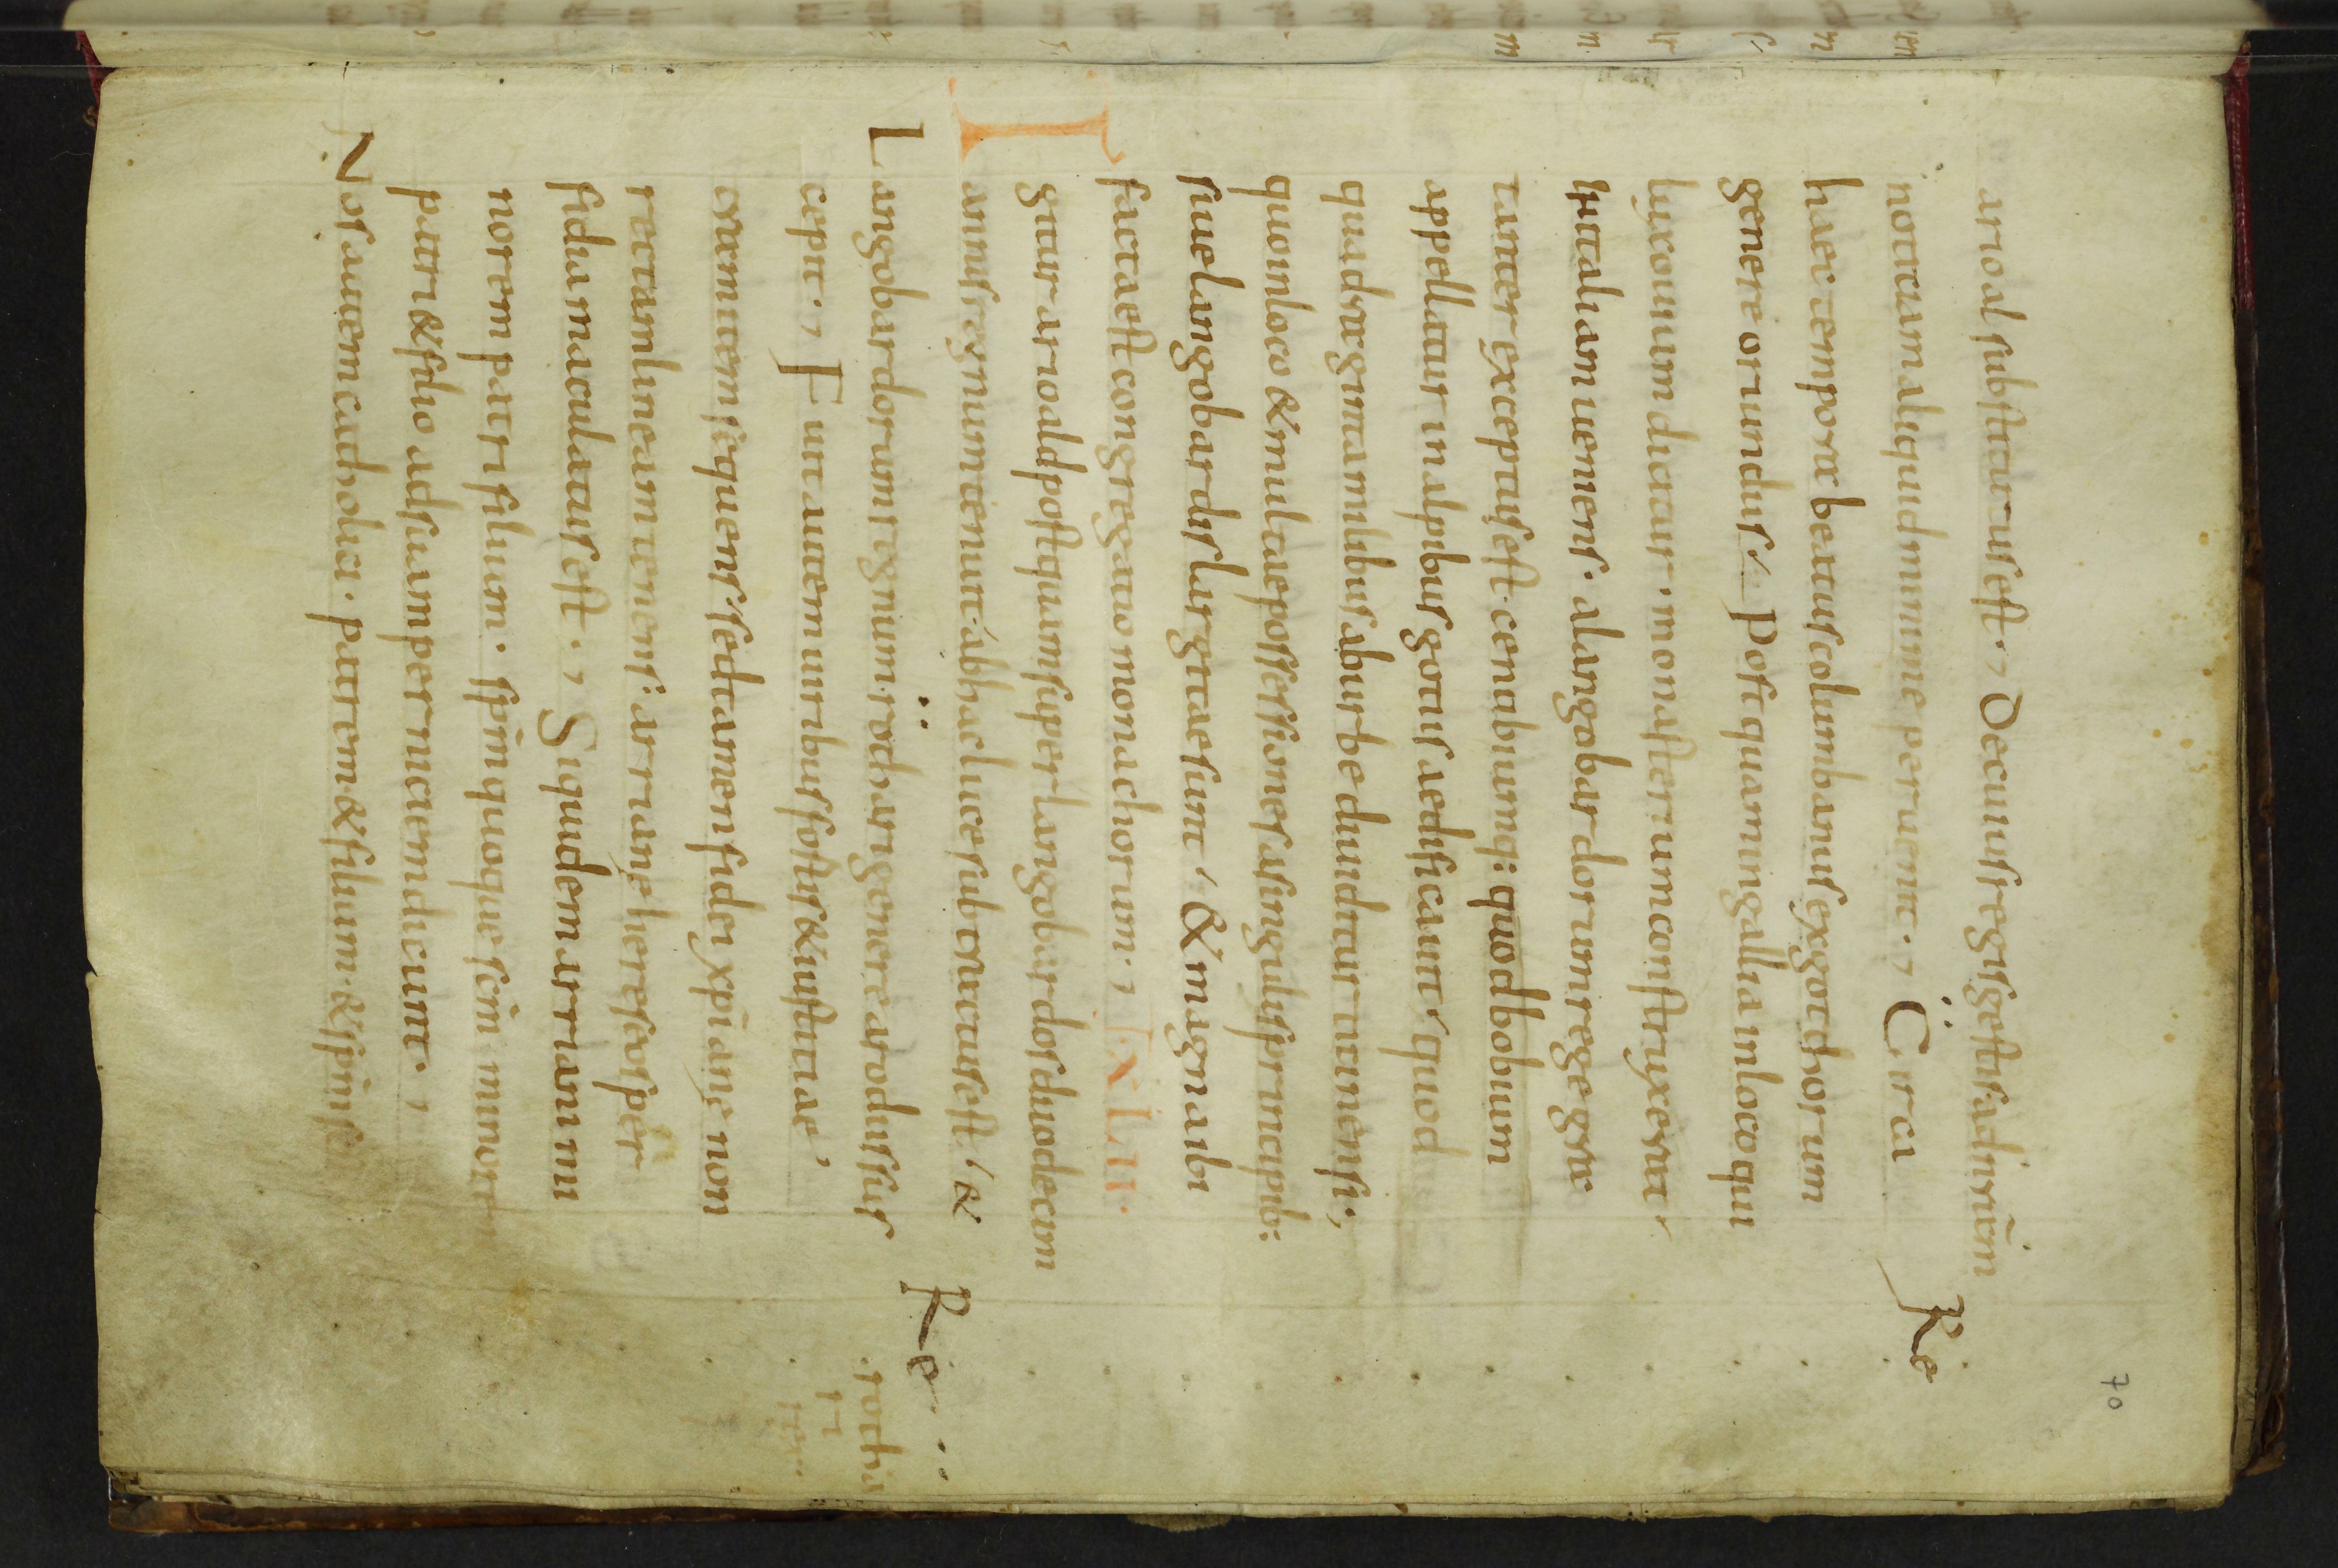 70
arioal substitutus est., De cuius regis gestis ad nr̄am
notitiam aliquid minime peruenit., Circa
haec tempora beatus columbanus ex gothorum
genere oriundus, Postquam in gallia in loco qui
luxouium dicitur. monasterium construxerat,
In italiam ueniens. a langobardorum rege gra
tanter exceptus est. cenobiumq; quod bobium
appellatur in alpibus gotiis aedificauit, quod
quadraginta milibus ab urbe diuiditur ticinensi.,
quo in loco & multae possessiones a singulis principib;
siue langobardis largitae sunt, & magna ibi
facta est congregatio monachorum., XLII.
Igitur arioald postquam super langobardos duodecim
annis regnum tenuit. ab hac luce subtractus est, &
Langobardorum regnum. rothari genere arodus sus
cepit., Fuit autem uiribus fortis & iustitiae,
tramitem sequens sed tamen fidei xp̄iane non
rectam lineam tenens. arriane hereseos per
fidia maculatus est., Siquidem arriani mi
norem patri filium. sp̄m quoque sc̄m minorem
patri & filio ad suam perniciem dicunt.,
Nos autem catholici. patrem & filium. & sp̄m s
Re
Re
rothari